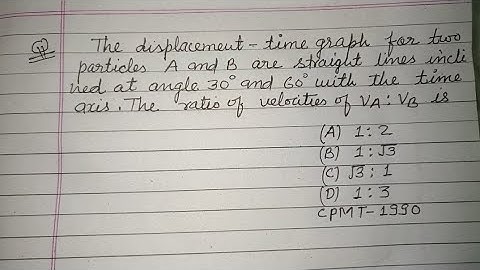 Q The displacement - time graph for two
particles A and B are straight lines incli
ned at angle 30° and 60° with the time
axis. The ratio of velocities of VA : VB is
(A) 1 : 2
(B) 1 : √3
(C) √3 : 1
(D) 1 : 3
CPMT - 1990